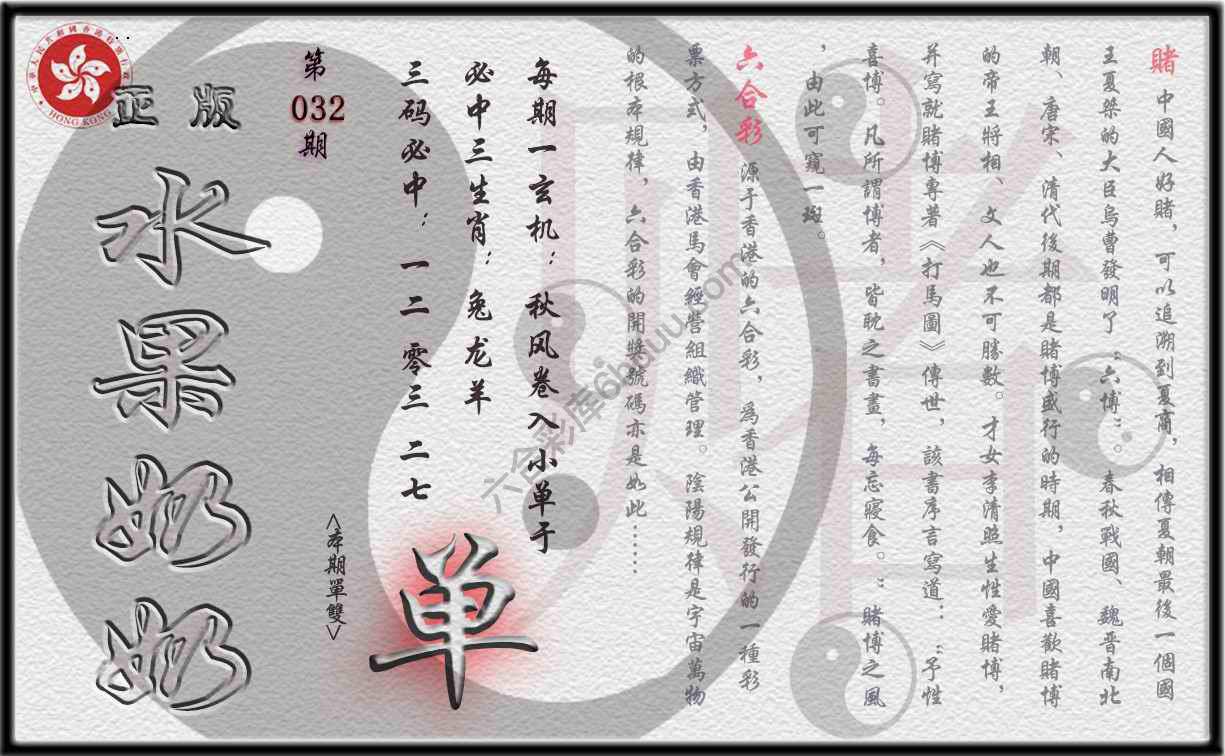 賭 中國人好賭，可以追溯到夏商，相傳夏朝最後一個國
王夏桀的大臣烏曹發明了“六博”。春秋戰國、魏晋南北
朝、唐宋、清代後期都是賭博盛行的時期，中國喜歡賭博
的帝王將相、文人也不可勝數。才女李清照生性愛賭博，
并寫就賭博專著《打馬圖》傳世，該書序言寫道：“予性
喜博。凡所謂博者，皆耽之書畫，每忘寢食。”賭博之風
，由此可窺一斑。
六合彩 源于香港的六合彩，爲香港公開發行的一種彩
票方式，由香港馬會經營組織管理。陰陽規律是宇宙萬物
的根本規律，六合彩的開獎號碼亦是如此……
每期一玄机：秋风卷入小单于
必中三生肖：兔龙羊
三码必中：一二 零三 二七
单
<本期單雙>
第
032
期
正版
水果奶奶
中華人民共和國香港特別行政區
HONG KONG
六合彩库6huuu.com
賭